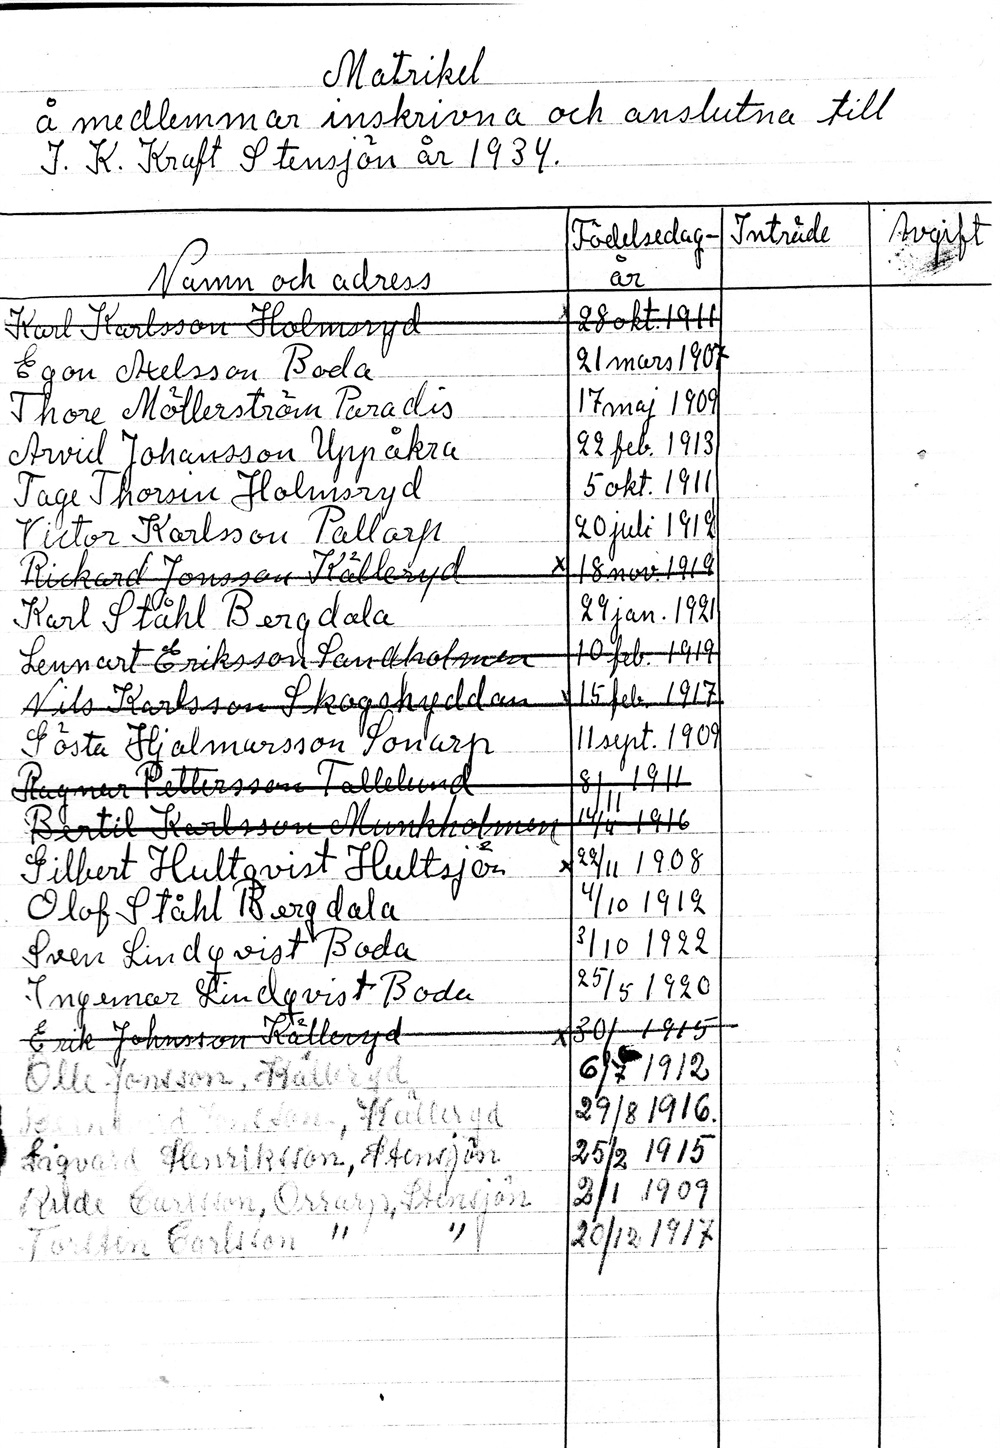 Matrikel
å medlemmar inskrivna och anslutna till
I. K. Kraft Stensjön år 1934.
Namn och adress Födelsedag- år Inträde Avgift
Karl Karlsson Holmsryd x 28 okt. 1911
Egon Axelsson Boda 21 mars 1907
Thore Möllerström Paradis 17 maj 1909
Arvid Johansson Uppåkra 22 feb. 1913
Tage Thorsin Holmsryd 5 okt. 1911
Victor Karlsson Pallarp 20 juli 1912
Rickard Jonsson Källeryd x 18 nov. 1919
Karl Ståhl Bergdala 29 jan. 1921
Lennart Eriksson Sandholmen 10 feb. 1919
Nils Karlsson Skogshyddan x 15 feb. 1917
Gösta Hjalmarsson Sonarp 11 sept. 1909
Ragnar Pettersson Tallelund 8/11 1911
Bertil Karlsson Munkholmen 14/4 1916
Gilbert Hultqvist Hultsjön x 22/11 1908
Olof Ståhl Bergdala 4/10 1912
Sven Lindqvist Boda 3/10 1922
Ingemar Lindqvist Boda 25/5 1920
Erik Johnsson Källeryd x 30/ 1915
Olle Jonsson, Källeryd 6/7 1912
Jonsson, Källeryd 29/8 1916.
Sigvard Henriksson, Stensjön 25/2 1915
Carlsson, Orrarp, Stensjön 2/1 1909
Torsten Carlsson " " 20/12 1917